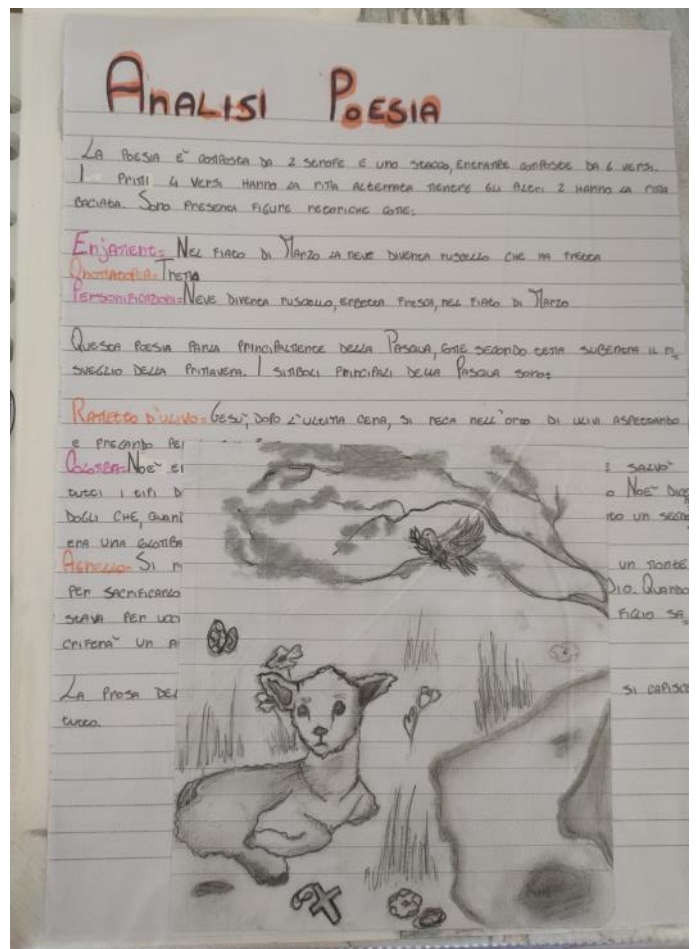 Analisi Poesia
La poesia è composta da 2 strofe e uno stacco, entrambe composte da 6 versi.
I primi 4 versi hanno la rima alternata mentre gli altri 2 hanno la rima
baciata. Sono presenti figure retoriche come:
Enjament= Nel fiato di Marzo la neve diventa ruscello che ha fretta
Onomatopia= Trema
Personificazioni= Neve diventa ruscello, erbetta fresca, nel fiato di Marzo
Questa poesia parla principalmente della Pasqua, come secondo tema subentra il ri_
sveglio della Primavera. I simboli principali della Pasqua sono:
Rametto d'ulivo= Gesù, dopo l'ultima cena, si reca nell'orto di ulivi aspettando
e pregando per
Colomba= Noè salvò
tutti i tipi d o Noè
dogli che, to un
era una colomba
Agnello= Si un monte
per sacrificarlo Dio. Quando
stava per figlio sa_
criferà un a
La prosa del si capisce
tutto.